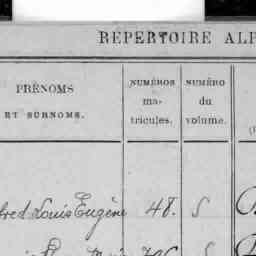 REPERTOIRE ALP
PRÉNOMS
ET SURNOMS.
NUMÉROS
ma-
tricules.
NUMÉRO
du
volume.
fred Louis Eugène 48. 5